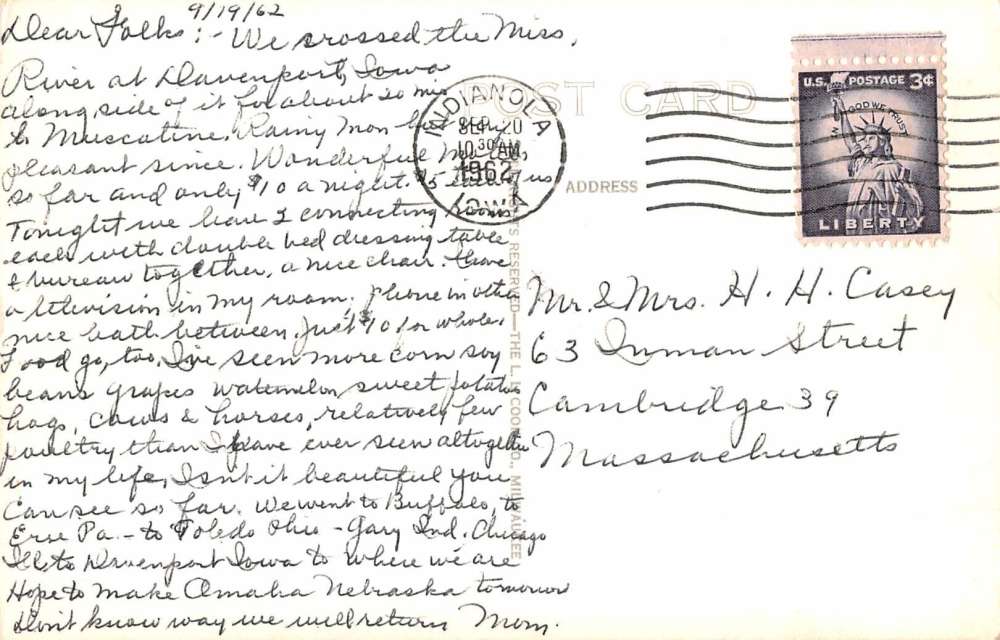 9/19/62
Dear Folks:- We crossed the Miss.
River at Davenport, Iowa
along side of it for about 20 mis
to Muscatine. Rainy Mon but
pleasant since. Wonderful
so far and only $10 a night. $5 each of us
Tonight we have 2 connecting rooms
each with double bed dressing table
& bureau together, a nice chair. I have
a television in my room. Phone in other
nice bath between. Just $10 for whole.
Food go, too. I've seen more corn soy
beans grapes watermelon sweet potatoes
hogs, cows & horses, relatively few
poultry than I have ever seen altogether
in my life, Isn't it beautiful you
can see so far. We went to Buffalo, to
Erie Pa. - to Toledo Ohio - Gary Ind. Chicago
Ill to Davenport Iowa to where we are
Hope to make Omaha Nebraska tomorrow
Don't know way we will return Mom.
POST CARD
INDIANOLA
SEP 20
10 30 AM
1962
IOWA
U.S. POSTAGE 3¢
IN GOD WE TRUST
LIBERTY
ADDRESS
Mr. & Mrs. H. H. Casey
63 Inman Street
Cambridge 39
Massachusetts
RESERVED—THE L. L. COOK CO., MILWAUKEE